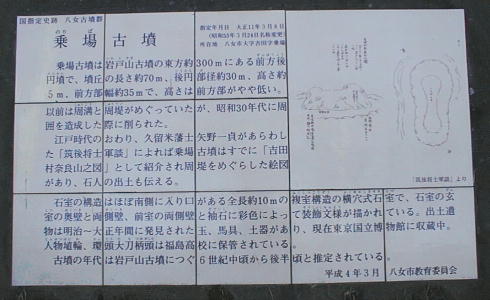 国指定史跡 八女古墳群
のりば
乗場古墳
指定年月日 大正11年3月8日
(昭和53年3月24日名称変更)
所在地 八女市大字吉田字乗場
乗場古墳は岩戸山古墳の東方約300mにある前方後
円墳で、墳丘の長さ約70m、後円部径約30m、高さ約
5m、前方部幅約35mで、高さは前方部がやや低い。
以前は周溝と周堤がめぐっていたが、昭和30年代に周
囲を造成した際に削られた。
江戸時代のおわり、久留米藩士矢野一貞があらわし
た「筑後将士軍談」によれば乗場古墳はすでに「吉田
村奈良山之図」として紹介され周堤をめぐらした絵図
があり、石人の出土も伝える。
石室の構造はほぼ南側に入り口がある全長約10mの複室構造の横穴式石室で、石室の玄
室の奥壁と両側壁、前室の両側壁と袖石に彩色によって装飾文様が描かれている。出土遺
物は明治~大正年間に発見された玉、馬具、土器があり、現在東京国立博物館に収蔵中。
人物埴輪、環頭大刀柄頭は福島高校に保管されている。
古墳の年代は岩戸山古墳につぐ6世紀中頃から後半頃と推定されている。
平成4年3月 八女市教育委員会
「筑後将士軍談」より